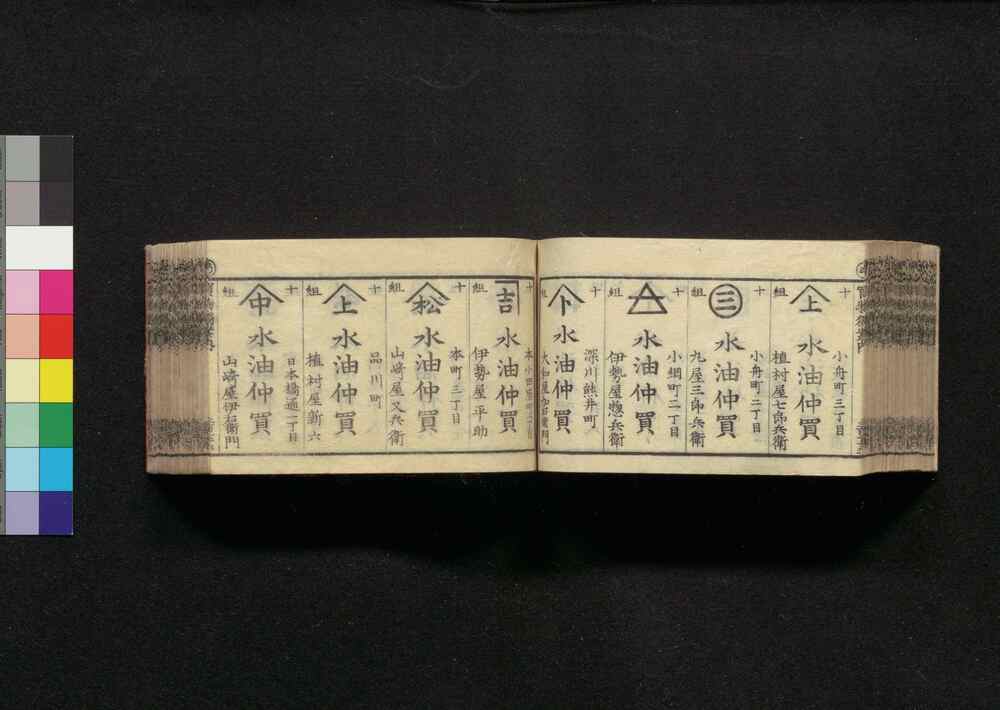 十組
上
水油仲買
小舟町三丁目
植村屋七郎兵衛
十組
三
水油仲買
小舟町二丁目
丸屋三郎兵衛
十組
水油仲買
小網町二丁目
伊勢屋惣兵衛
十組
卜
水油仲買
深川熊井町
十
吉
水油仲買
組
伊勢屋平助
十組
松
水油仲買
本町三丁目
山崎屋又兵衛
十組
上
水油仲買
品川町
植村屋新六
十組
中
水油仲買
日本橋通二丁目
山崎屋伊右衛門